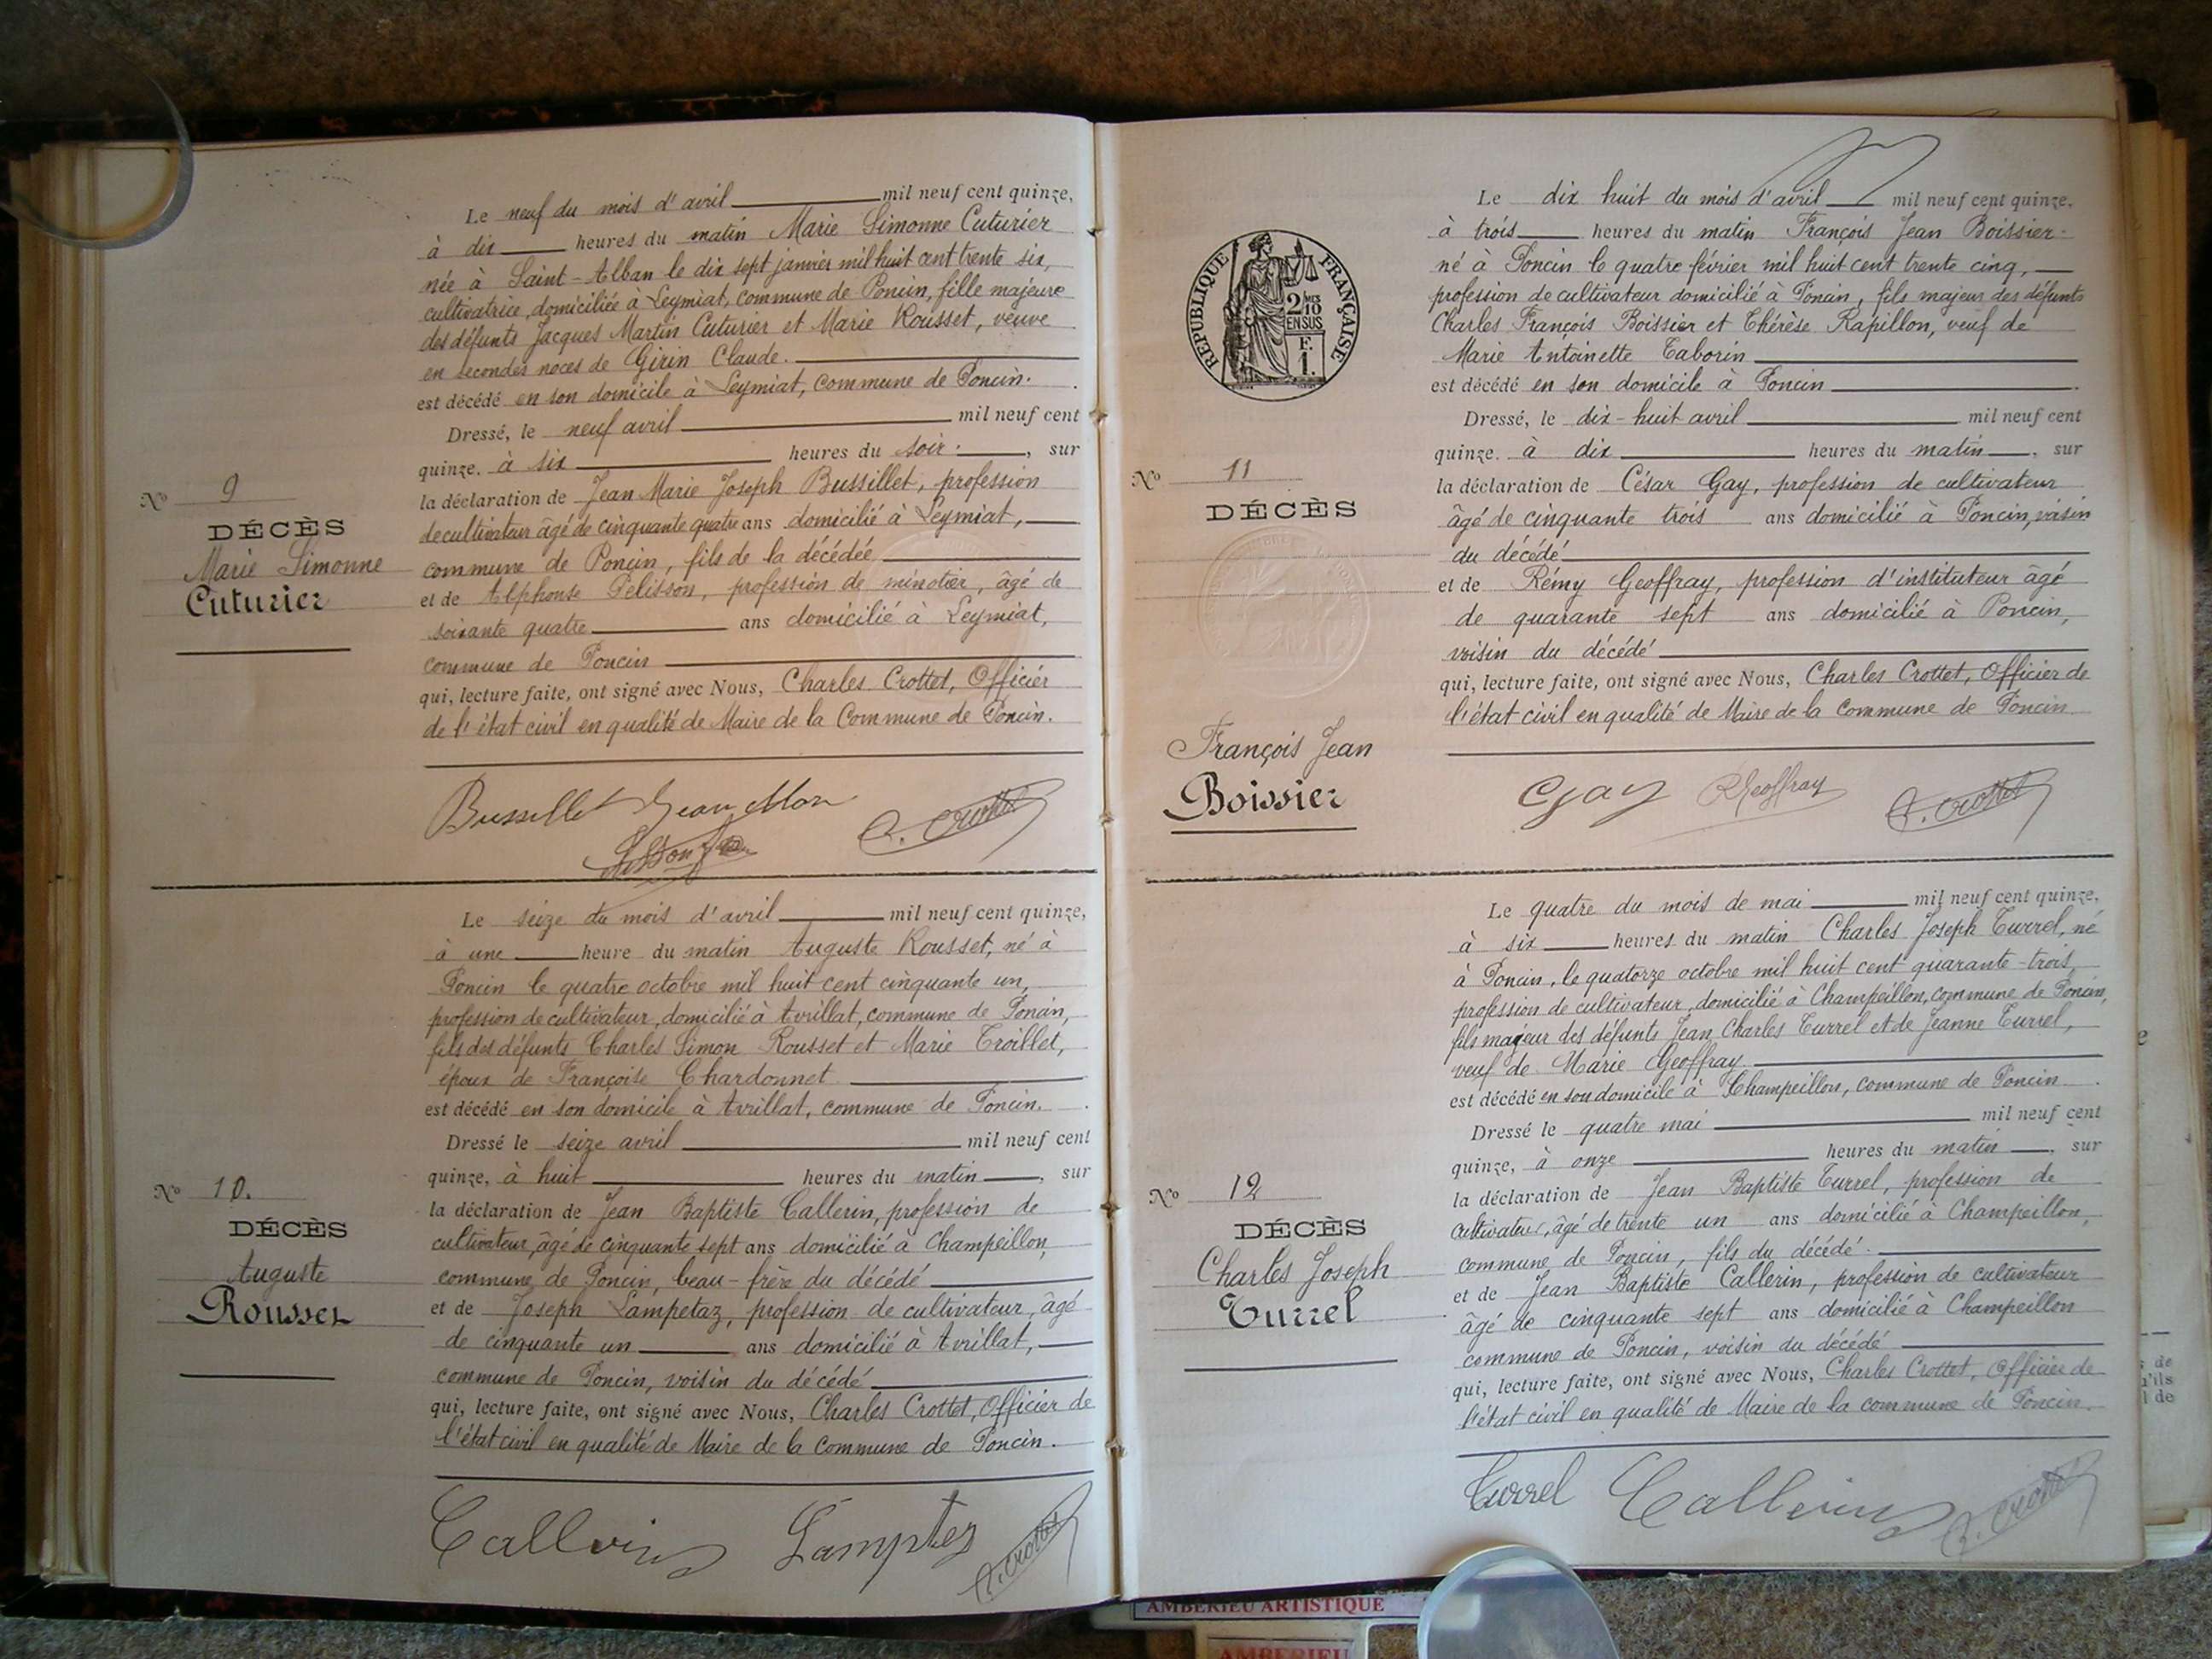 Le neuf du mois d'avril mil neuf cent quinze,
à dix heures du matin Marie Simonne Cuturier
née à Saint-Alban le dix sept janvier mil huit cent trente six,
cultivatrice, domiciliée à Leymiat, commune de Poncin, fille majeure
des défunts Jacques Martin Cuturier et Marie Rousset, veuve
en secondes noces de Girin Claude.
est décédé en son domicile à Leymiat, commune de Poncin.
Dressé, le neuf avril mil neuf cent
quinze. à six heures du soir, sur
la déclaration de Jean Marie Joseph Bussillet, profession
de cultivateur âgé de cinquante quatre ans domicilié à Leymiat,
commune de Poncin, fils de la décédée
et de Alphonse Pelisson, profession de minotier, âgé de
soixante quatre ans domicilié à Leymiat,
commune de Poncin
qui, lecture faite, ont signé avec Nous, Charles Crottet, Officier
de l'état civil en qualité de Maire de la Commune de Poncin.
No 9
DÉCÈS
Marie Simonne
Cuturier
Bussillet Jean C. Crottet
Le seize du mois d'avril mil neuf cent quinze,
à une heure du matin Auguste Rousset, né à
Poncin le quatre octobre mil huit cent cinquante un,
profession de cultivateur, domicilié à Avrillat, commune de Poncin,
fils des défunts Charles Simon Rousset et Marie Troillet,
époux de Françoise Chardonnet
est décédé en son domicile à Avrillat, commune de Poncin.
Dressé le seize avril mil neuf cent
quinze, à huit heures du matin, sur
la déclaration de Jean Baptiste Callerin, profession de
cultivateur, âgé de cinquante sept ans domicilié à Champeillon,
commune de Poncin, beau-frère du décédé
et de Joseph Lampetaz, profession de cultivateur, âgé
de cinquante un ans domicilié à Avrillat,
commune de Poncin, voisin du décédé
qui, lecture faite, ont signé avec Nous, Charles Crottet, Officier de
l'état civil en qualité de Maire de la Commune de Poncin.
No 10.
DÉCÈS
Auguste
Rousset
Callerin Lamptez C. Crottet
RÉPUBLIQUE FRANÇAISE
2 MES
10
EN SUS
F.
1.
Le dix huit du mois d'avril mil neuf cent quinze.
à trois heures du matin François Jean Boissier
né à Poncin le quatre février mil huit cent trente cinq,
profession de cultivateur domicilié à Poncin, fils majeur des défunts
Charles François Boissier et Thérèse Rapillon, veuf de
Marie Antoinette Taborin
est décédé en son domicile à Poncin
Dressé, le dix-huit avril mil neuf cent
quinze. à dix heures du matin, sur
la déclaration de César Gay, profession de cultivateur
âgé de cinquante trois ans domicilié à Poncin, voisin
du décédé
et de Rémy Geoffray, profession d'instituteur âgé
de quarante sept ans domicilié à Poncin,
voisin du décédé
qui, lecture faite, ont signé avec Nous, Charles Crottet, Officier de
l'état civil en qualité de Maire de la Commune de Poncin
No 11
DÉCÈS
François Jean
Boissier
Gay R Geoffray C. Crottet
Le quatre du mois de mai mil neuf cent quinze,
à six heures du matin Charles Joseph Turrel, né
à Poncin, le quatorze octobre mil huit cent quarante-trois,
profession de cultivateur, domicilié à Champeillon, commune de Poncin,
fils majeur des défunts Jean Charles Turrel et de Jeanne Turrel,
veuf de Marie Geoffray
est décédé en son domicile à Champeillon, commune de Poncin
Dressé le quatre mai mil neuf cent
quinze, à onze heures du matin, sur
la déclaration de Jean Baptiste Turrel, profession de
cultivateur, âgé de trente un ans domicilié à Champeillon,
commune de Poncin, fils du décédé.
et de Jean Baptiste Callerin, profession de cultivateur
âgé de cinquante sept ans domicilié à Champeillon
commune de Poncin, voisin du décédé
qui, lecture faite, ont signé avec Nous, Charles Crottet, Officier de
l'état civil en qualité de Maire de la commune de Poncin.
No 12
DÉCÈS
Charles Joseph
Turrel
Turrel Callerin C. Crottet
AMBERIEU ARTISTIQUE
AMBERIEU